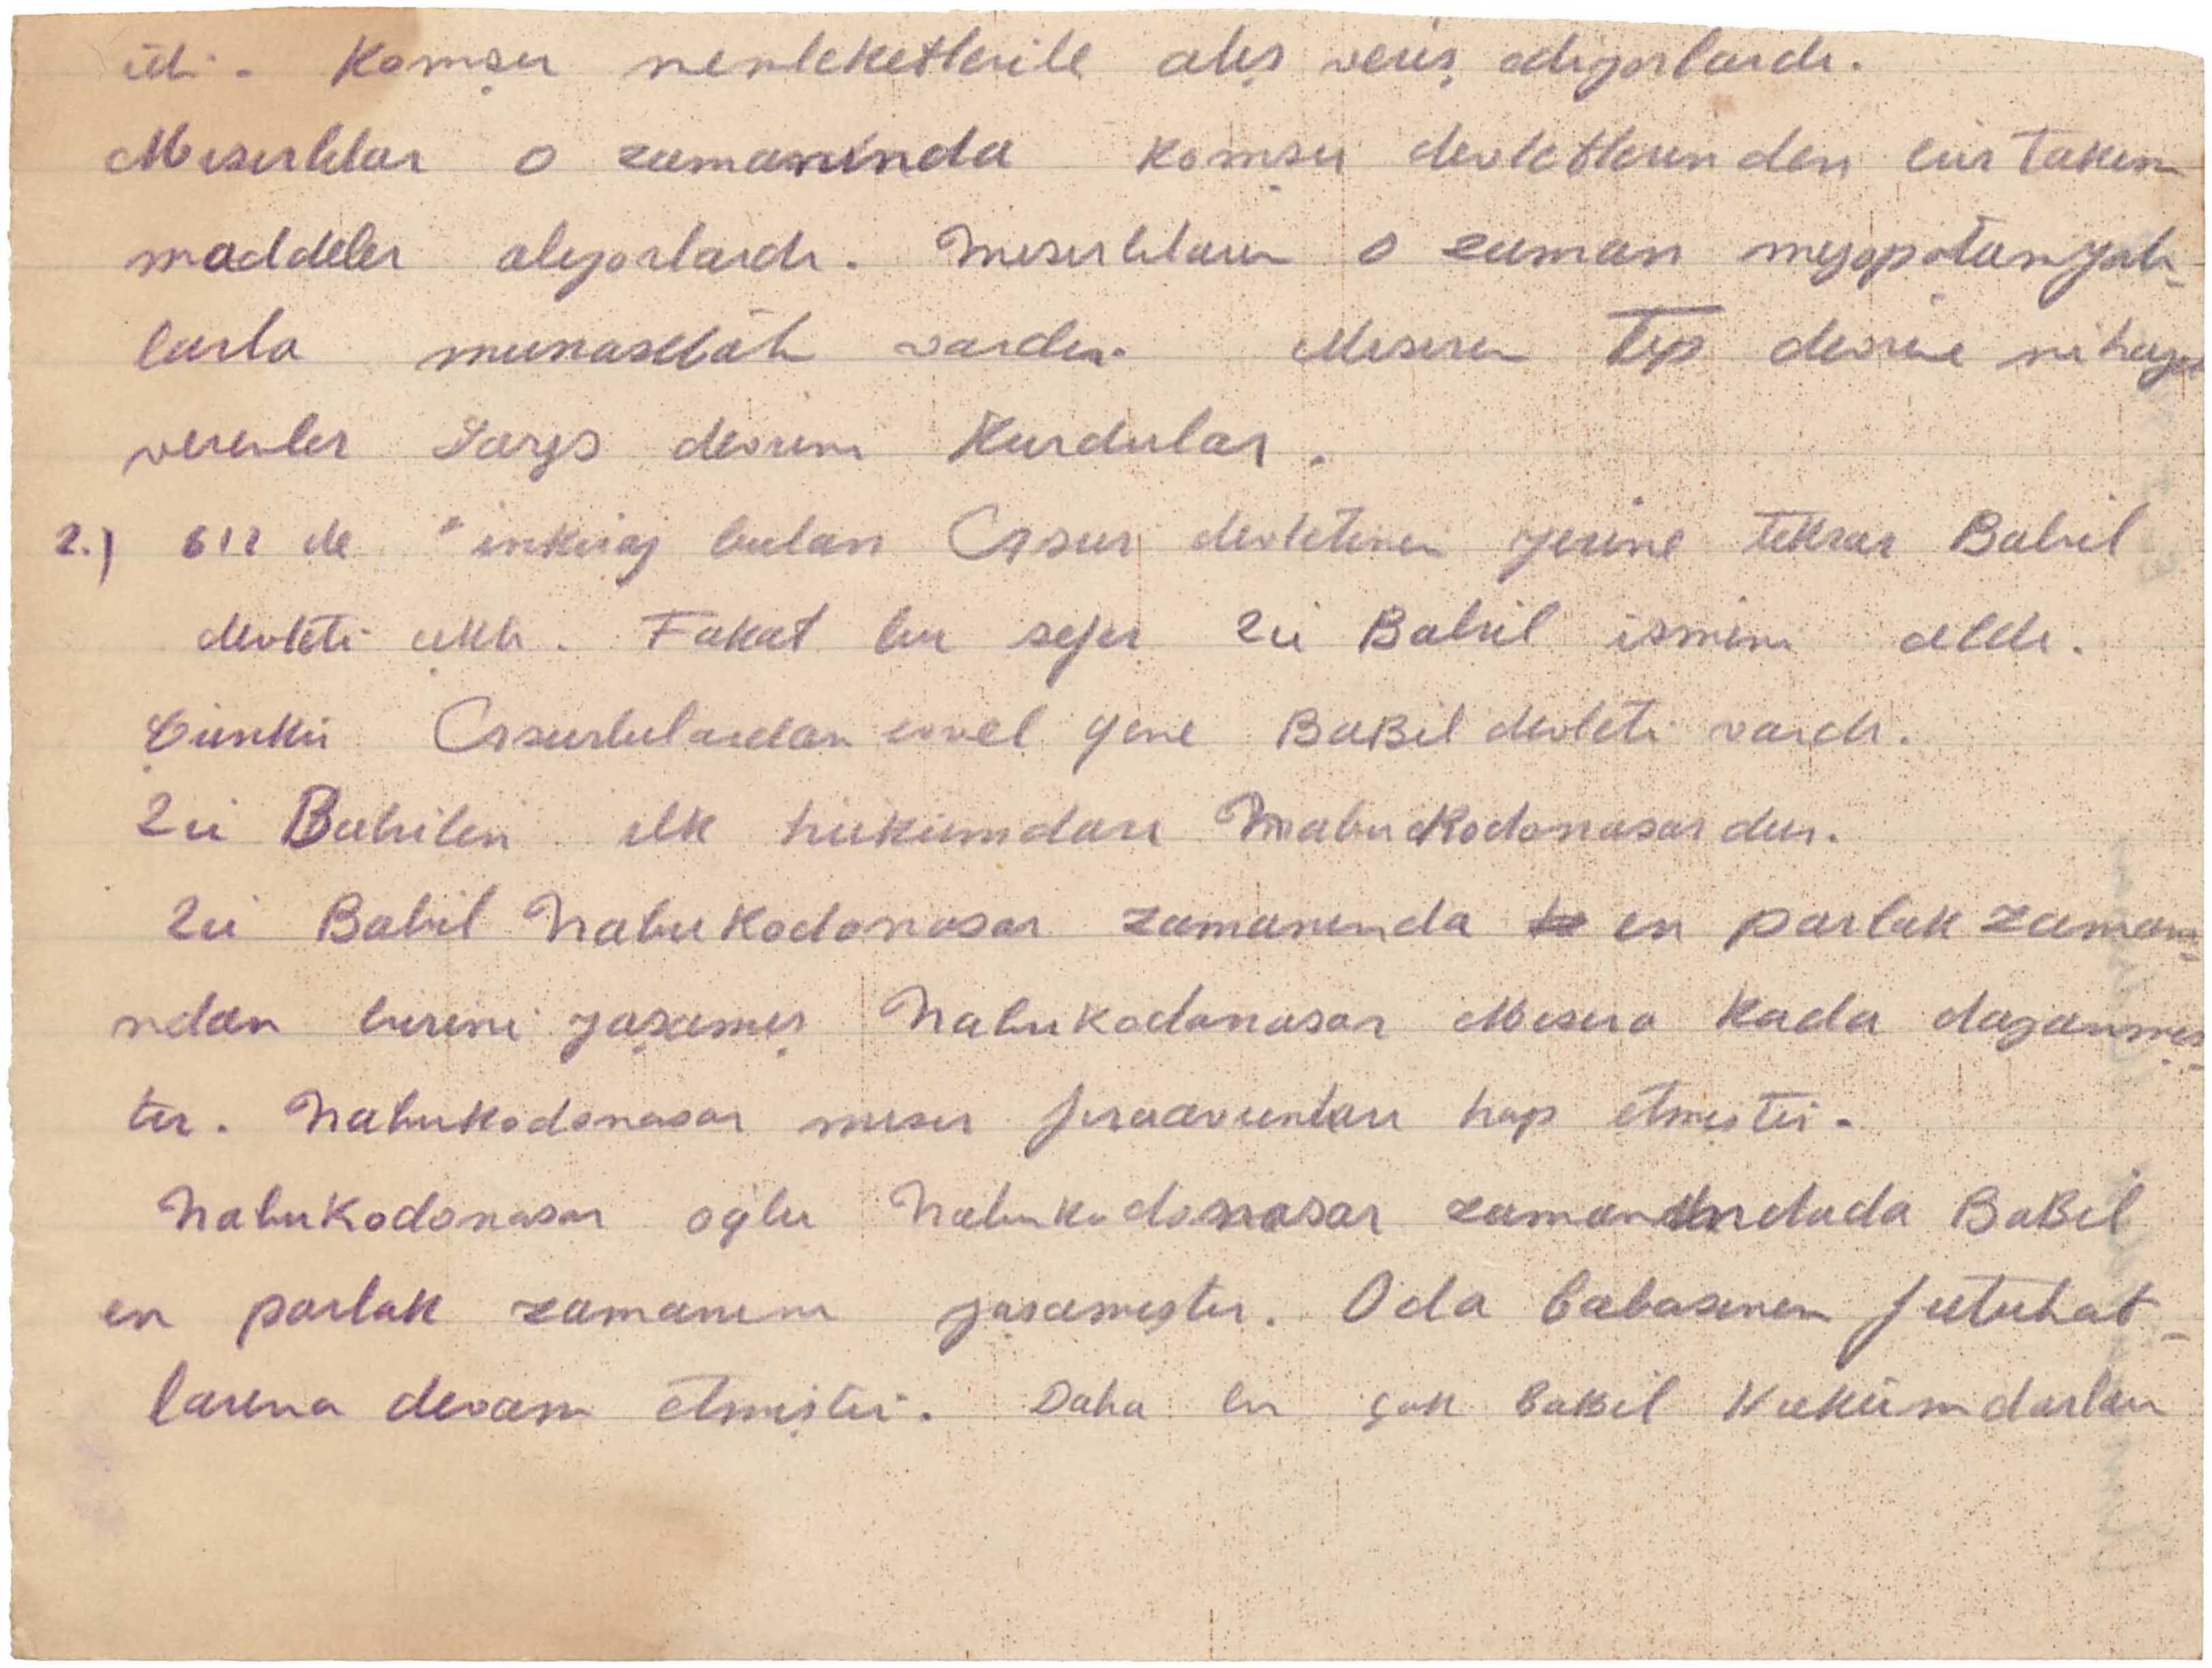 idi. Komşu memleketlerile alış veriş ediyorlardı.
Mısırlılar o zamanında komşu devletlerinden bir takım
maddeler alıyorlardı. Mısırlıların o zaman mezopotamyalı-
larla munasebatı vardır. Mısırın Tıp devrine nihayet
verenler Sayıs devrini Kurdular.
2.) 612 de inkiraz bulan Assur devletinin yerine tekrar Babil
devleti çıktı. Fakat bu sefer 2ci Babil ismini aldı.
Çünkü Assurlulardan evvel gene BaBil devleti vardı.
2ci Babilin ilk hükümdarı Nabukodonasar dur.
2ci Babil Nabukodonasar zamanında en parlak zamanı-
ndan birini yaşamış Nabukodonasar Mısıra kada dayanmış-
tır. Nabukodonasar mısır firaavunları hap etmiştir.
Nabukodonasar oğlu Nabukodonasar zamanındada BaBil
en parlak zamanını yaşamıştır. Oda babasının fütuhat-
larına devam etmiştir. Daha bir çok babil Hükümdarları